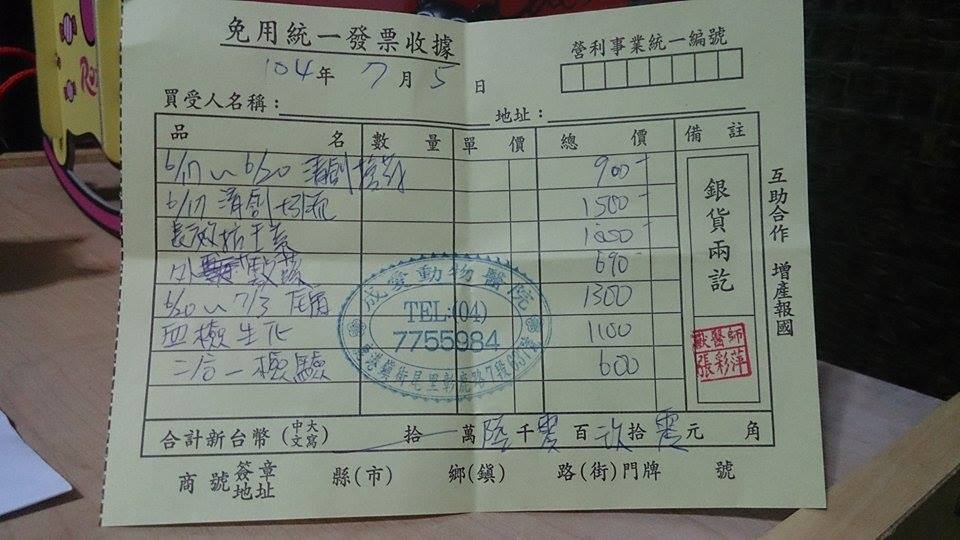 免用統一發票收據
營利事業統一編號
104年 7月 5日
買受人名稱：
地址：
品名 數量 單價 總價 備註
6/17~6/20 清創 900
6/17 清創引流 1500
長效抗生素
敷藥 690
6/20~7/3 1300
血檢生化 1100
二合一檢驗 600
合計新台幣(中文大寫) 拾萬陸千零百玖拾零元 角
商號簽章地址 縣(市) 鄉(鎮) 路(街)門牌 號
銀貨兩訖
獸醫師
張彩萍
互助合作 增產報國
成愛動物醫院
TEL:(04)
7755984